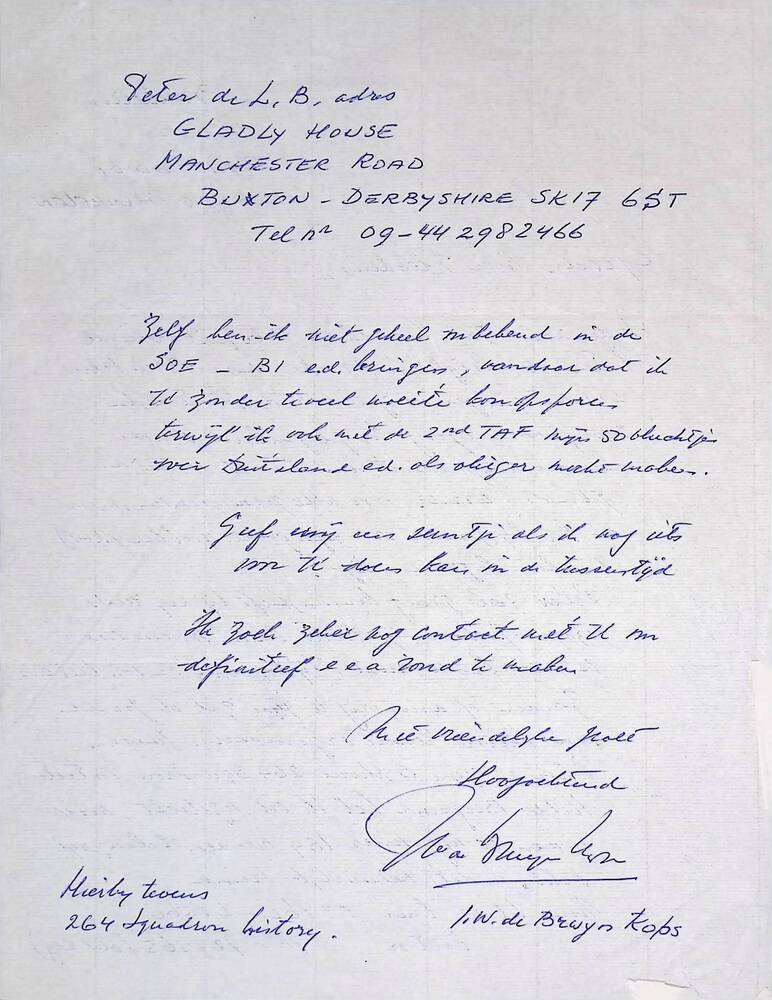 Peter de L. B. adres
GLADLY HOUSE
MANCHESTER ROAD
BUXTON - DERBYSHIRE SK17 6ST
Tel nr 09-44 2982466
Zelf ben ik niet geheel in de
SOE - BI e.d. , vandaar dat ik
U zonder teveel moeite kon opsporen
terwijl ik ook met de 2nd TAF mijn 50 vluchtjes
over Duitsland e.d. als vlieger mocht maken.
Geef mij een seintje als ik nog iets
voor U doen kan in de tussentijd
Ik zoek zeker nog contact met U om
definitief e e a rond te maken
Met vriendelijke groet
Hoogachtend
J.W. de Bruyn Kops
Hierby tevens
264 Squadron history.